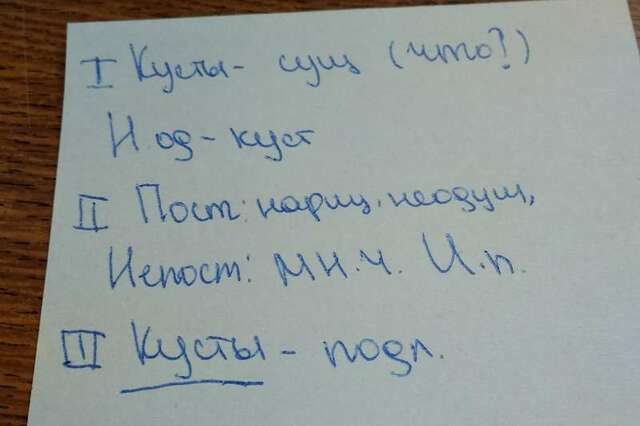 I Кусты - сущ (что?)
Н.од - куст
II Пост: нариц, неодуш,
Непост: мн.ч. И.п.
III Кусты - подл.